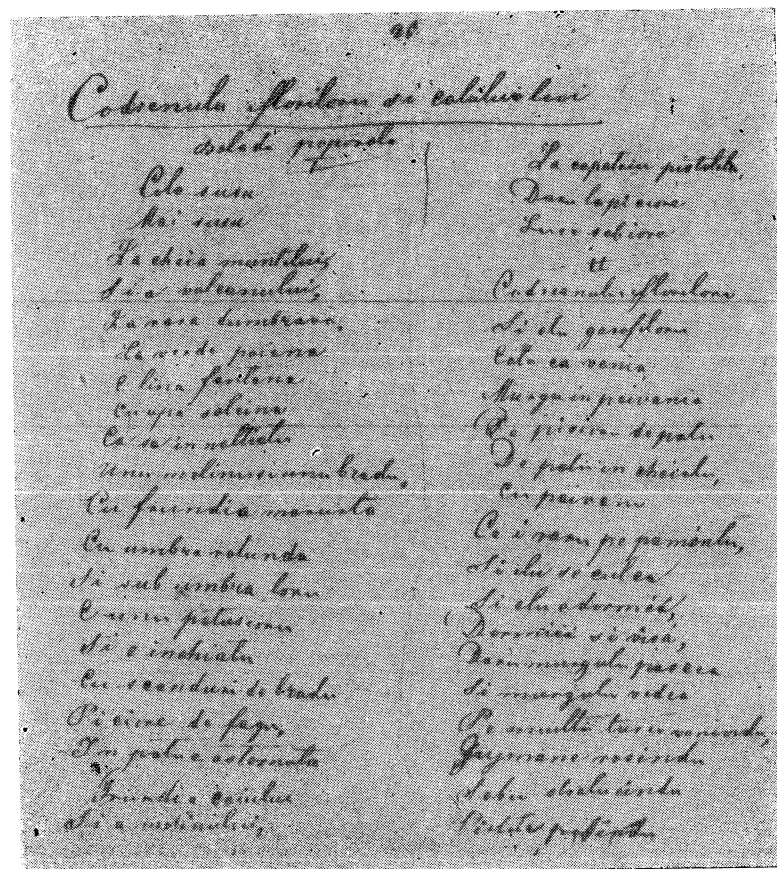 25
Codrenulu floriloru si calului lui
baladi poporale
Cele susu
Mai susu
La cheia muntelui,
Si a vulcanului,
La rara dumbrava,
La verde poiana
E lina fantana
Cu apa salcina
Ca sa in naltiatu
Unu molinu si unu bradu,
Cu frundia marunta
Cu umbra rotunda
Si sub umbra loru
E unu patusioru
Si e inchiatu
Cu scanduri de bradu
Picióre de fagu,
Im patu e asternuta
Frundi a
Si a
La capataiu pistolele,
Daru la picióre
Luce sabióre
Codreanulu floriloru
Si elu garofiloru
Este ca venia
Murgu in peivania
De piciorü de patu
De patu in cheiatu,
Cu peivanu
Ce i raru pe pamentu,
Si elu se culca
Si elu adormiea,
Dormiea si visa,
Daru murgulu pascea
Si murgulu vedea
Pe multi turci venindu,
Dujmane
Sabii stralucindu
Pistole